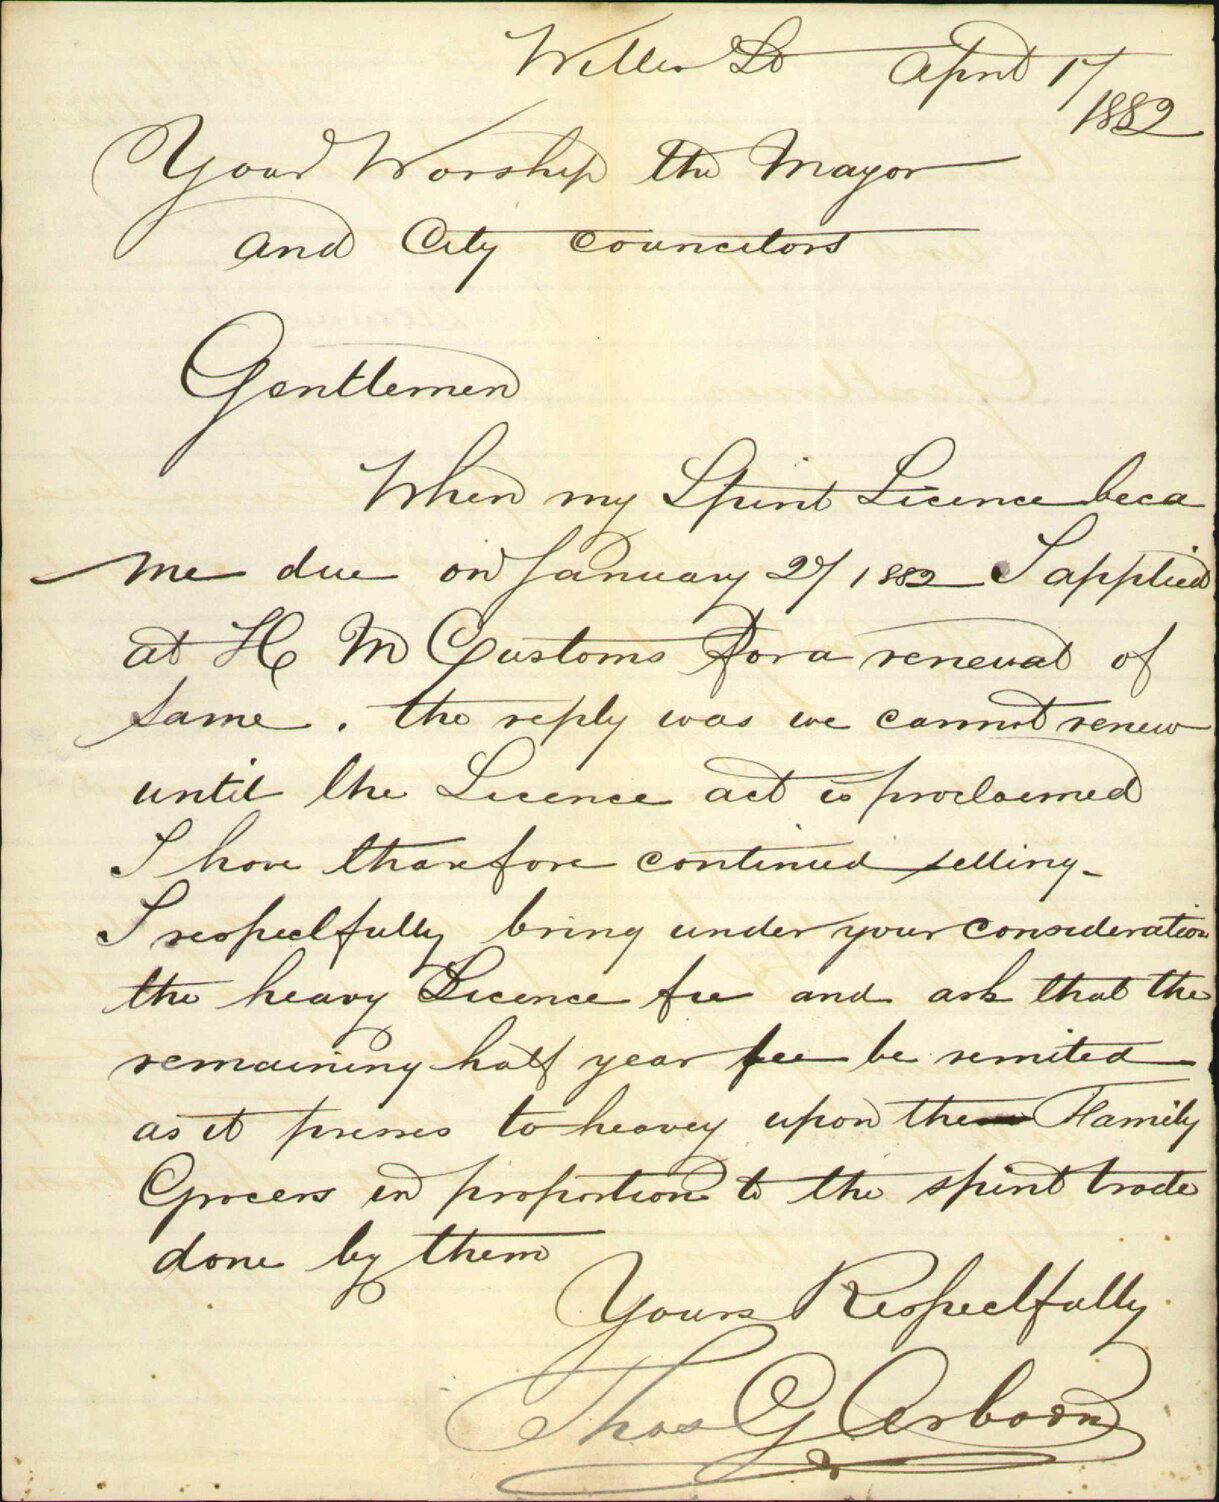 Willis St April 17/
1882
Your Worship the Mayor
and City Councilors
Gentlemen
When my Spirit Licence beca
me due on January 27/1882 I applied
at H M Customs for a renewal of
same. the reply was we cannot renew
until the Licence act is proclaimed
I have tharefore continued selling-
I respectfully bring under your consideration
the heavy Licence fee and ask that the
remaining half year fee be remited
as it presses to heavey upon the Family
Grocers in proportion to the spirit trade
done by them
Yours Respectfully
Thos G Arboin